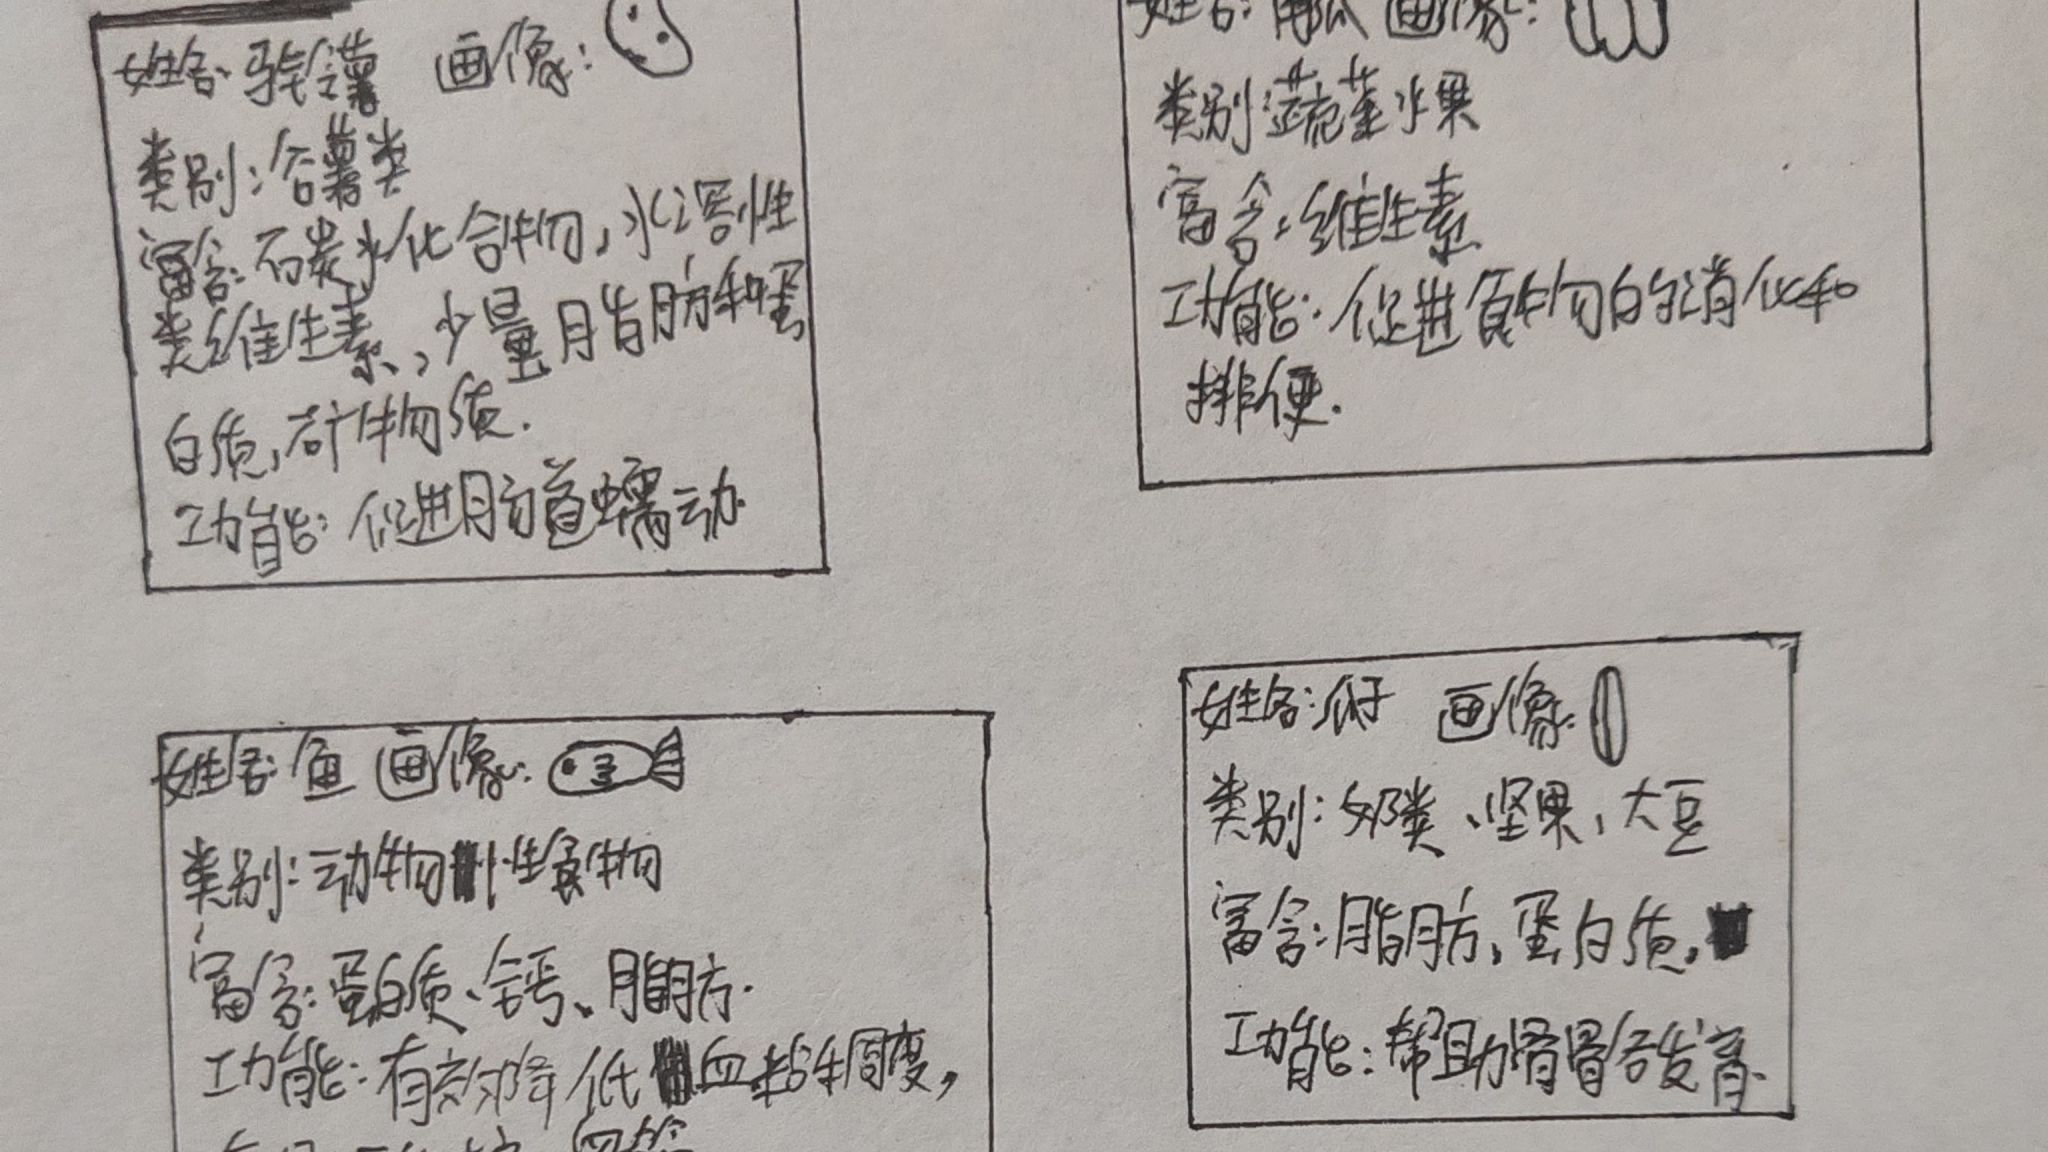 姓名 画像：
类别：谷薯类
富含：石炭水化合物，水溶性
类维生素、，少量脂肪和蛋
白质，矿物质．
功能：促进肠道蠕动．
姓名：南瓜 画像：
类别：蔬菜水果
富含：维生素
功能：促进食物的消化和
排便．
姓名：鱼 画像：
类别：动物性食物
富含：蛋白质、钙、脂肪．
功能：有效降低血粘稠度，
姓名：瓜子 画像：
类别：奶类、坚果、大豆
富含：脂肪，蛋白质，
功能：帮助骨骼发育．